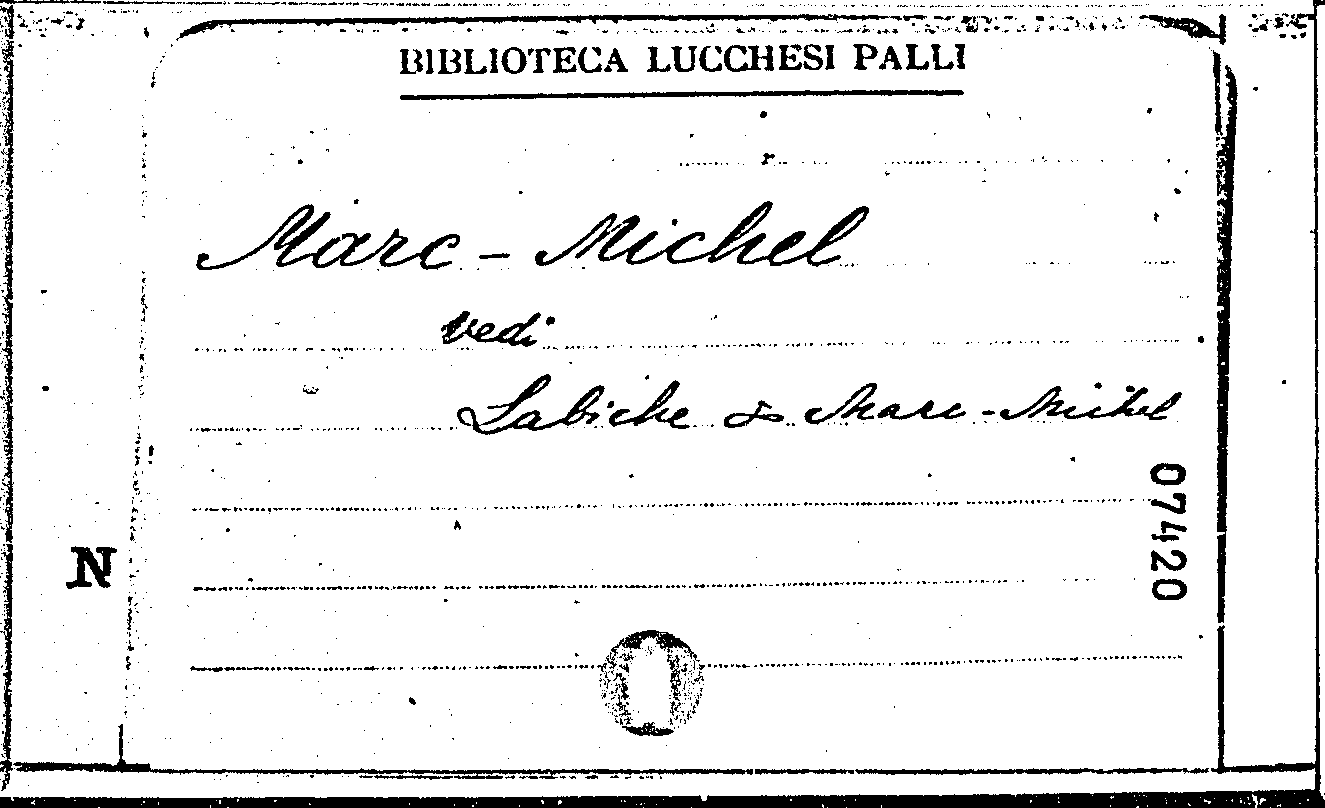 BIBLIOTECA LUCCHESI PALLI
Marc - Michel
vedi
Labiche & Marc - Michel
07420
N